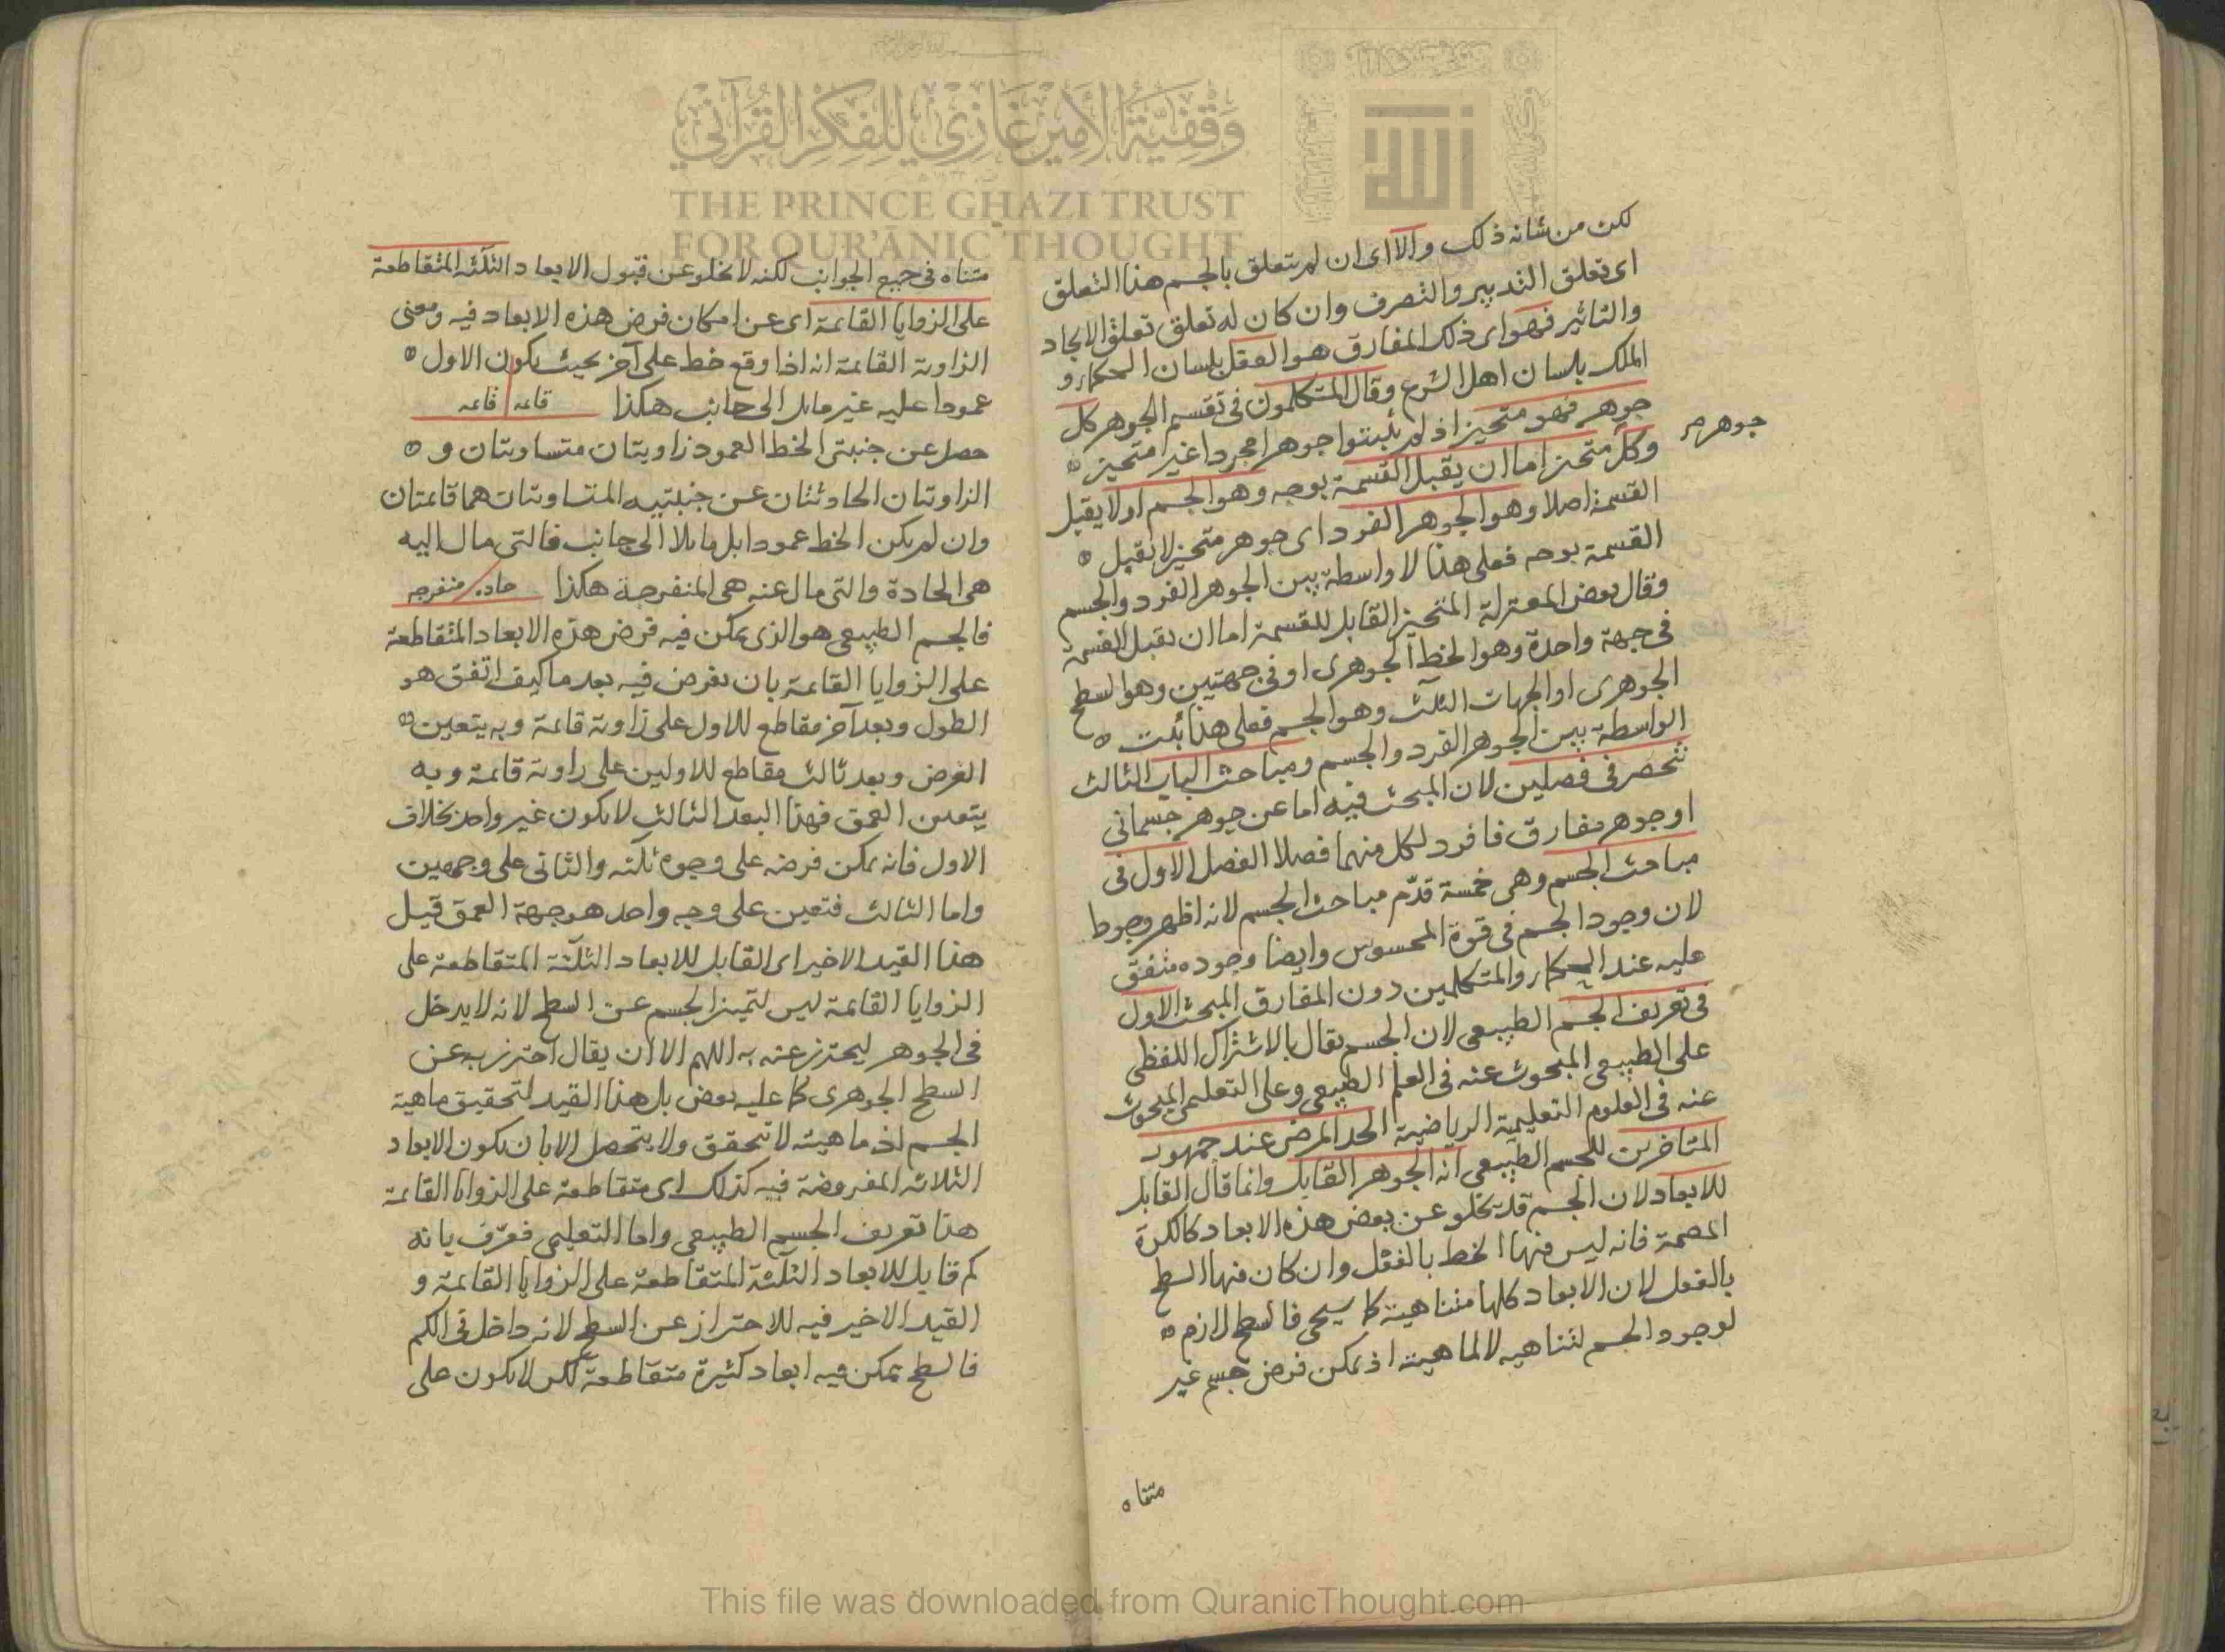 وقفية الأمير غازي للفكر القرآني
THE PRINCE GHAZI TRUST
FOR QUR'ANIC THOUGHT
الله
لكن من شانه ذلك والا اى ان لم يتعلق بالجسم هذا التعلق
اى تعلق التدبير والتصرف وان كان له تعلق تعلق الايجاد
والتاثير فهو اى ذلك المفارق هو العقل بلسان الحكماء و
الملك بلسان اهل الشرع وقال المتكلمون فى تقسيم الجوهر كل
جوهر فهو متحيز اذ لم يثبتوا جوهرا مجردا غير متحيز
جوهر
وكل متحيز اما ان يقبل القسمة بوجه وهو الجسم او لا يقبل
القسمة اصلا وهو الجوهر الفرد اى جوهر متحيز لا يقبل
القسمة بوجه فعلى هذا لا واسطة بين الجوهر الفرد والجسم
وقال بعض المعتزلة المتحيز القابل للقسمة اما ان يقبل القسمة
فى جهة واحدة وهو الخط الجوهرى او فى جهتين وهو السطح
الجوهرى او الجهات الثلث وهو الجسم فعلى هذا ثبت
الواسطة بين الجوهر الفرد والجسم ومباحث الباب الثالث
تنحصر فى فصلين لان المبحث فيه اما عن جوهر جسمانى
او جوهر مفارق فافرد لكل منهما فصلا الفصل الاول فى
مباحث الجسم وهى خمسة قدّم مباحث الجسم لانه اظهر وجودا
لان وجود الجسم فى قوة المحسوس وايضا وجوده متفق
عليه عند الحكماء والمتكلمين دون المفارق المبحث الاول
فى تعريف الجسم الطبيعى لان الجسم يقال بالاشتراك اللفظى
على الطبيعى المبحوث عنه فى العلم الطبيعى وعلى التعليمى المبحوث
عنه فى العلوم التعليمية الرياضية الحد المرضى عند جمهور
المتاخرين للجسم الطبيعى انه الجوهر القابل وانما قال القابل
للابعاد لان الجسم قد يخلو عن بعض هذه الابعاد كالكرة
المصمتة فانه ليس فيها الخط بالفعل وان كان فيها السطح
بالفعل لان الابعاد كلها متناهية كما سيجى فالسطح لازم
لوجود الجسم لتناهيه لا لماهيته اذ يمكن فرض جسم غير
متناه
متناه فى جميع الجوانب لكنه لا يخلو عن قبول الابعاد الثلثة المتقاطعة
على الزوايا القائمة اى عن امكان فرض هذه الابعاد فيه ومعنى
الزاوية القائمة انه اذا وقع خط على آخر بحيث يكون الاول
عمودا عليه غير مايل الى جانب هكذا قائمه قائمه
حصل عن جنبتى الخط العمود زاويتان متساويتان و
الزاويتان الحادثتان عن جنبتيه المتساويتان هما قائمتان
وان لم يكن الخط عمودا بل مايلا الى جانب فالتى مال اليه
هى الحادة والتى مال عنه هى المنفرجة هكذا حاده منفرجه
فالجسم الطبيعى هو الذى يمكن فيه فرض هذه الابعاد المتقاطعة
على الزوايا القائمة بان يفرض فيه بعد ما كيف اتفق هو
الطول وبعد آخر مقاطع للاول على زاوية قائمة وبه يتعين
العرض وبعد ثالث مقاطع للاولين على زاوية قائمة وبه
يتعين العمق فهذا البعد الثالث لا يكون غير واحد بخلاف
الاول فانه يمكن فرضه على وجوه ثلثه والثانى على وجهين
واما الثالث فتعين على وجه واحد هو جهة العمق قيل
هذا القيد الاخير اى القابل للابعاد الثلثة المتقاطعة على
الزوايا القائمة ليس لتميز الجسم عن السطح لانه لا يدخل
فى الجوهر ليحترز عنه به اللهم الا ان يقال احترز به عن
السطح الجوهرى كما عليه بعض بل هذا القيد لتحقيق ماهية
الجسم اذ ماهيته لا تتحقق ولا يتحصل الا بان يكون الابعاد
الثلاثه المفروضة فيه كذلك اى متقاطعة على الزوايا القائمة
هذا تعريف الجسم الطبيعى واما التعليمى فعرّف بانه
كم قابل للابعاد الثلثة المتقاطعة على الزوايا القائمة و
القيد الاخير فيه للاحتراز عن السطح لانه داخل فى الكم
فالسطح يمكن فيه ابعاد كثيرة متقاطعة لكن لا يكون على
This file was downloaded from QuranicThought.com